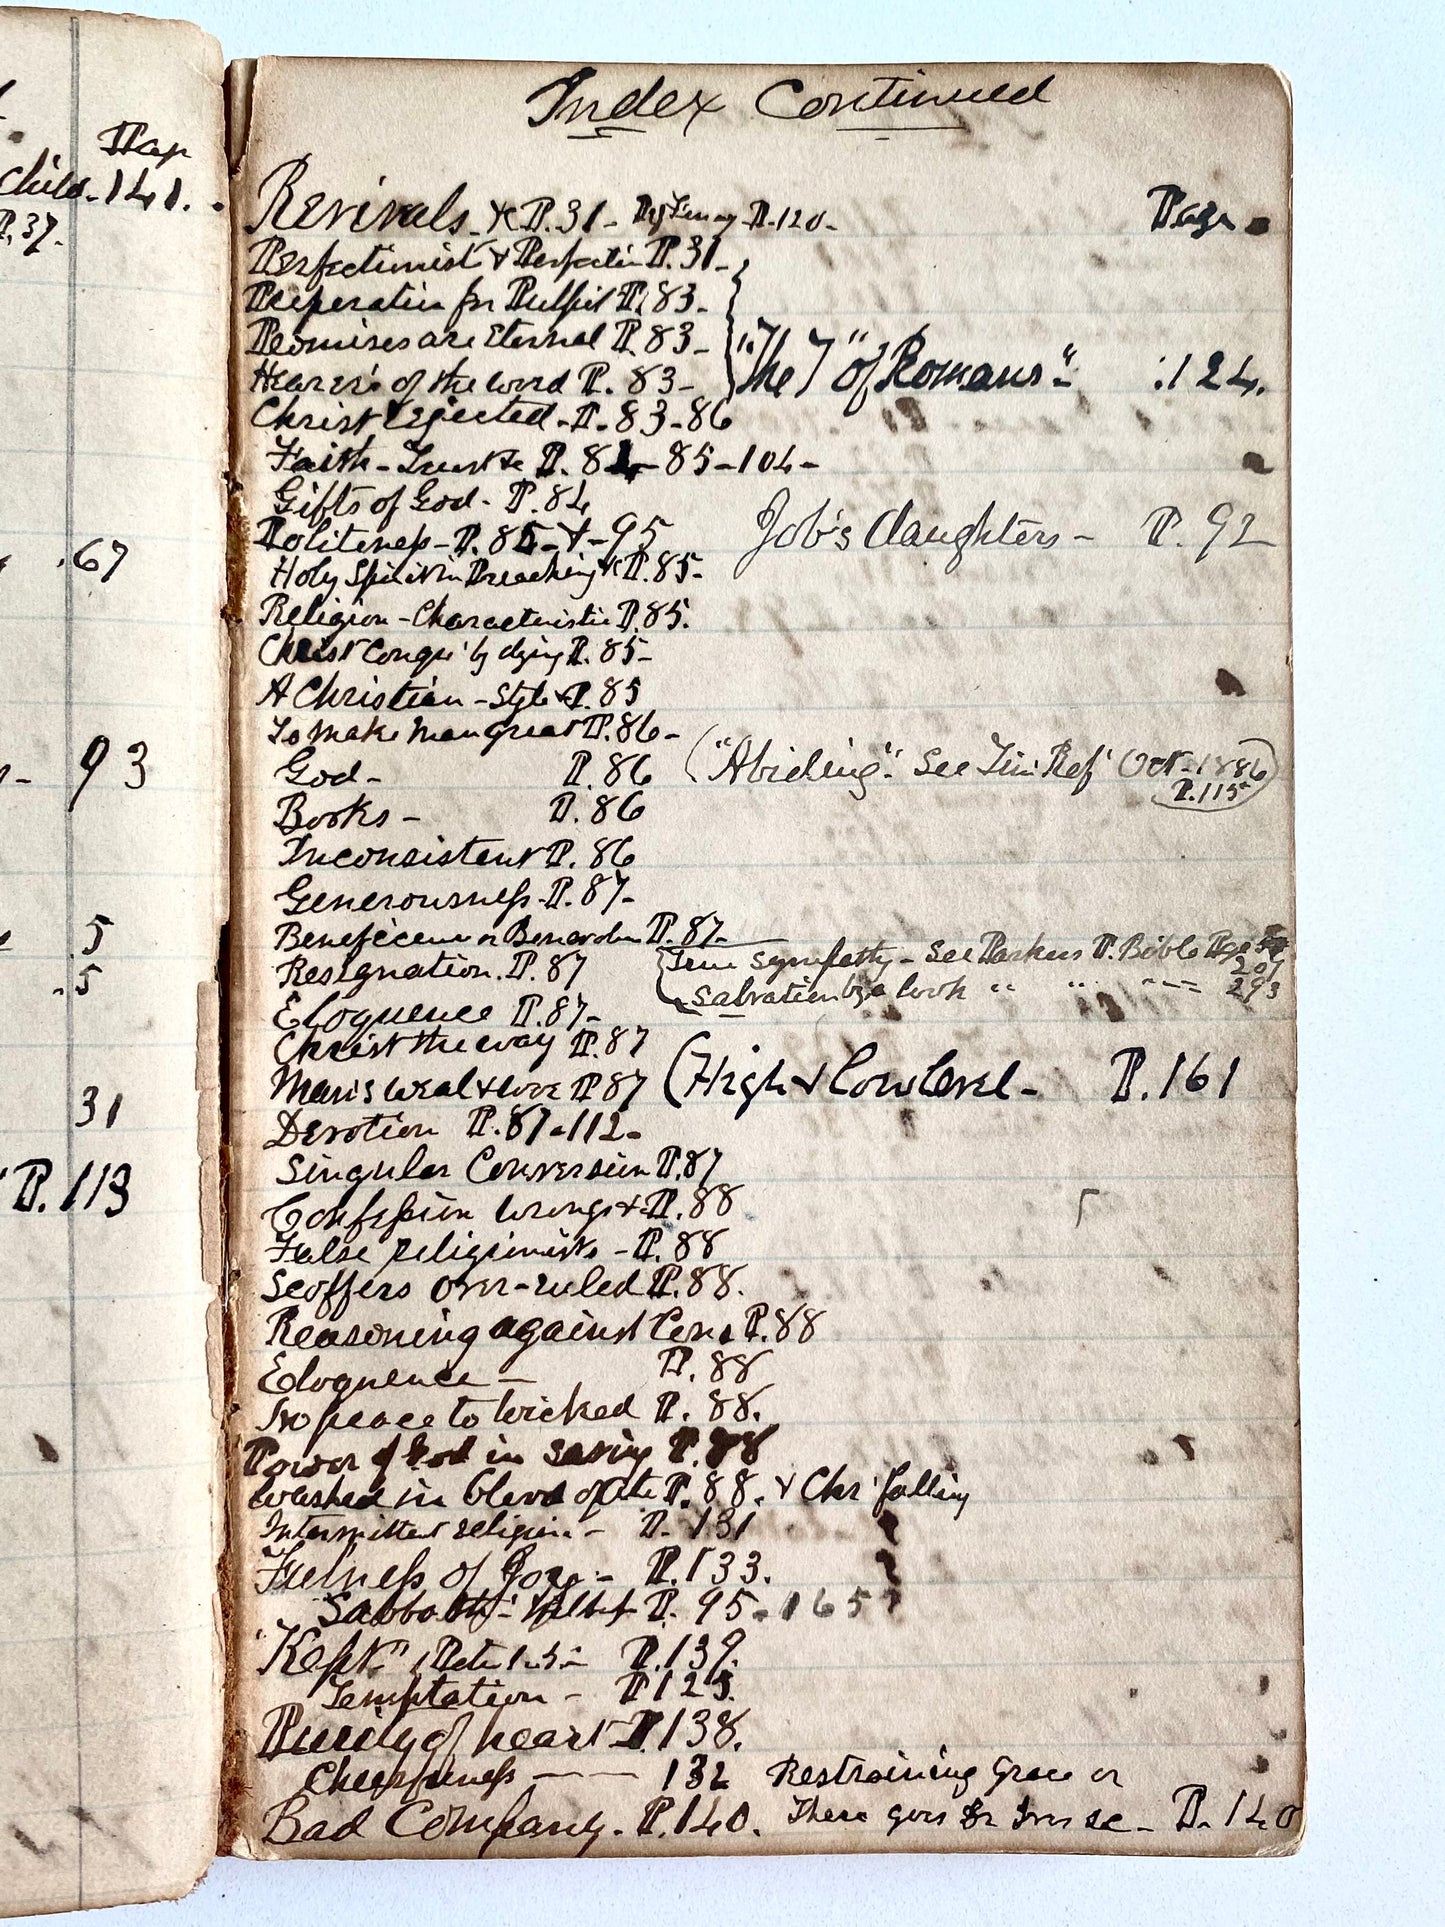 Page
Child. 141.
P. 37.
67
93
5
5
31
P. 113
Index Continued
Revivals &c P. 31 - P. 120.
Page
Perfectionist & Perfection P. 31 -
Preperation for Pulpit P. 83 -
Promises are Eternal P. 83 -
"The 7" of Romans" - 124.
Hearers of the word P. 83 -
Christ Rejected - P. 83 - 86
Faith - Trust &c P. 84 - 85 - 104 -
Gifts of God - P. 84
Politeness - P. 85 - & - 95
Job's daughters - P. 92
Holy Spirit in Preaching &c P. 85 -
Religion - Characteristic P. 85.
Christ Conqu' by dying P. 85 -
A Christian - Style & P. 85
To make Man great P. 86 -
God - P. 86
("Abiding". See Oct - 1886
P. 115)
Books - P. 86
Inconsistent P. 86
Generousness - P. 87 -
Benefecence or Benevolen P. 87 -
True sympathy - See Parkers P. Bible Page
207
Resignation. P. 87
Salvation by a look " " " 293
Eloquence P. 87 -
Christ the way P. 87
Man's weal & woe P 87
(High & low level - P. 161
Devotion P. 87 - 112 -
Singular Conversion P. 87
Confession wrongs & P. 88
False religionists - P. 88
Scoffers over-ruled P. 88.
Reasoning against Cons P. 88
Eloquence - P. 88
No peace to wicked P. 88.
Power of God in saving P. 88
Washed in blood of P. 88. & Chr' falling
Intermittent religion - P. 131
Fulness of - P. 133.
Sabbath - P. 95 - 165
"Kept" 1 Peter 1-5 - P. 139.
Temptation - P 125.
Purity of heart - P. 138.
Cheerfulness - - 132
Restraining Grace or
Bad Company. P. 140.
There goes - P. 140